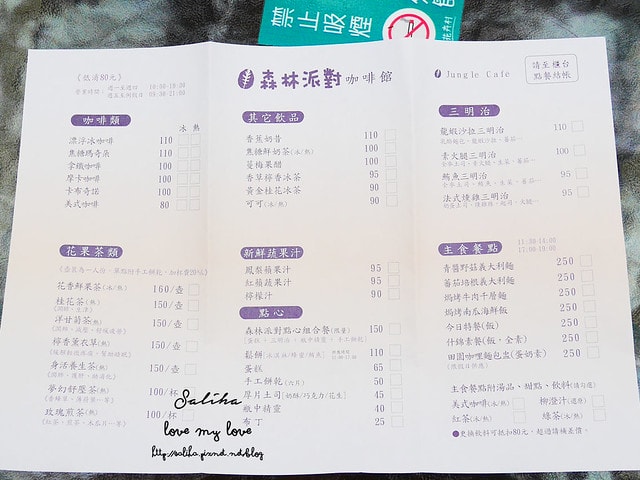 禁止吸煙
《低消80元》
森林派對咖啡館
Jungle Café
請至櫃台
點餐結帳
咖啡類
冰 熱
漂浮冰咖啡 110
焦糖瑪奇朵 110
拿鐵咖啡 100
摩卡咖啡 100
卡布奇諾 100
美式咖啡 80
花果茶類
花香鮮果茶(冰/熱) 160/壺
桂花茶(熱) 150/壺
洋甘菊茶(熱) 150/壺
檸香薰衣草(熱) 150/壺
身活養生茶(熱) 150/壺
夢幻舒壓茶(熱) 100/杯
玫瑰煎茶(熱) 100/杯
其它飲品
香蕉奶昔 110
焦糖鮮奶茶(冰/熱) 100
蔓梅果醋 100
香草檸香冰茶 90
黃金桂花冰茶 90
可可(冰/熱) 90
新鮮蔬果汁
鳳梨蘋果汁 95
紅蘋蔬果汁 95
檸檬汁 90
點心
森林派對點心組合餐(限量) 150
鬆餅 110
蛋糕 65
手工餅乾(六片) 50
厚片土司(奶酥/巧克力/花生) 45
瓶中精靈 40
布丁 25
三明治
龍蝦沙拉三明治 110
素火腿三明治 100
鮪魚三明治 95
法式燻雞三明治 95
主食餐點
11:30-14:00
17:00-19:00
青醬野菇義大利麵 250
蕃茄培根義大利麵 250
焗烤牛肉千層麵 250
焗烤南瓜海鮮飯 250
今日特餐(飯) 250
什錦素餐(飯，全素) 250
田園咖哩麵包盅(蛋奶素) 250
主食餐點附湯品、甜點、飲料(請勾選)
美式咖啡(冰/熱) 柳澄汁(還原)
紅茶(冰/熱) 綠茶(冰/熱)
●更換飲料可抵扣80元，超過請補差價。
Saliha
love my love
http://saliha.pixnet.net/blog